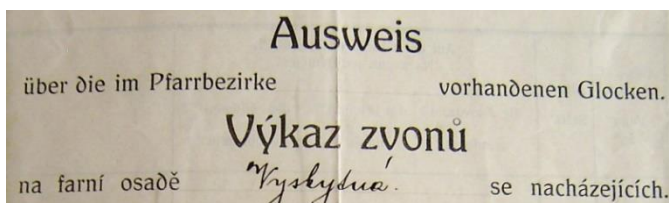 Ausweis
über die im Pfarrbezirke vorhandenen Glocken.
Výkaz zvonů
na farní osadě Vyskytná. se nacházejících.